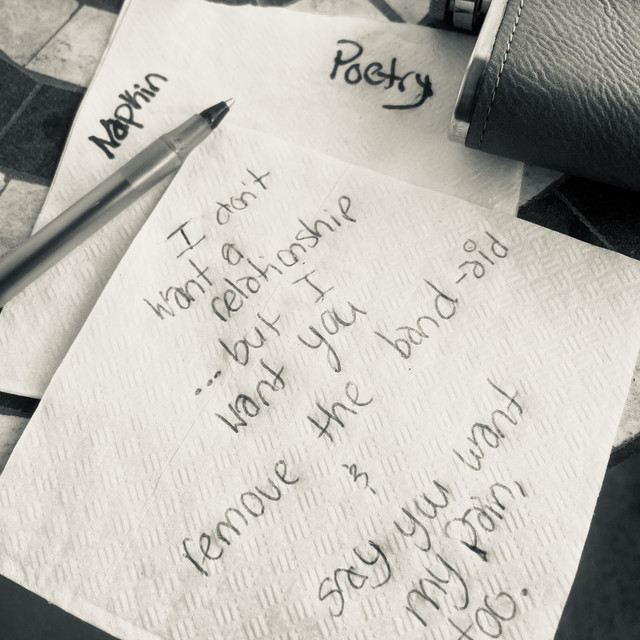 Napkin
Poetry
I dont
want a
relationship
... but I
want you
remove the band-aid
&
say you want
my pain,
too.